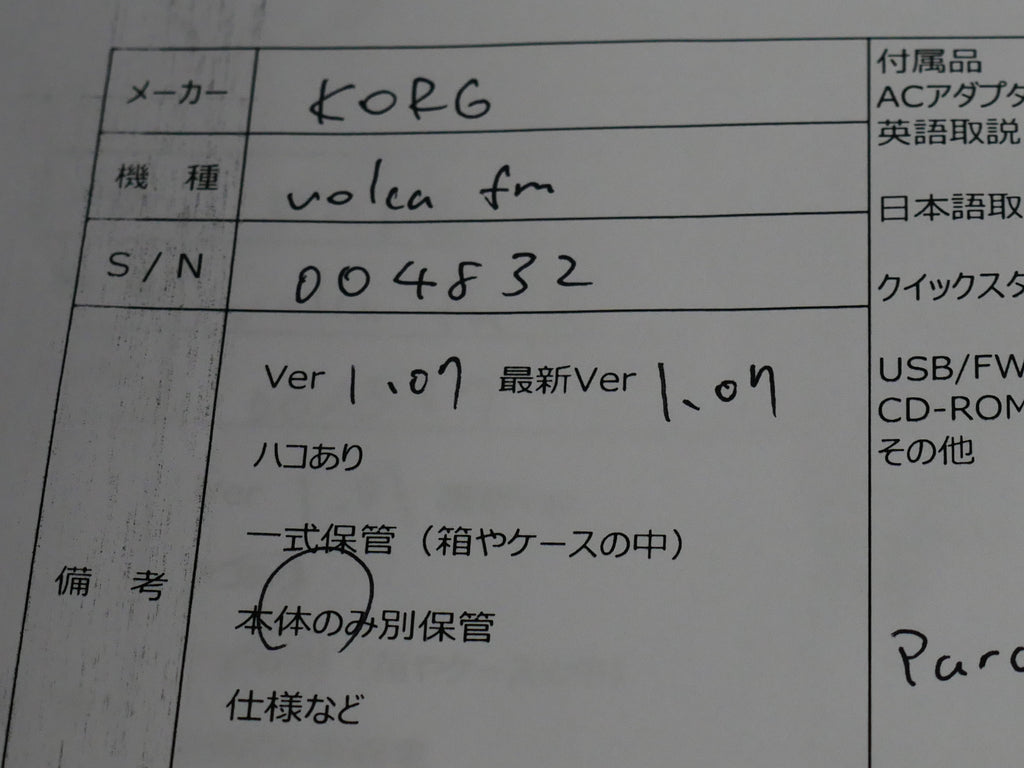 メーカー KORG
機 種 volca fm
S/N 004832
備 考
Ver 1.07 最新Ver 1.07
ハコあり
一式保管（箱やケースの中）
本体のみ別保管
仕様など
付属品
ACアダプタ
英語取説
日本語取
クイックスタ
USB/FW
CD-ROM
その他
Para